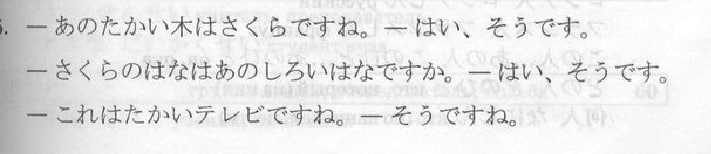 5. — あのたかい木はさくらですね。— はい、そうです。
— さくらのはなはあのしろいはなですか。— はい、そうです。
— これはたかいテレビですね。— そうですね。